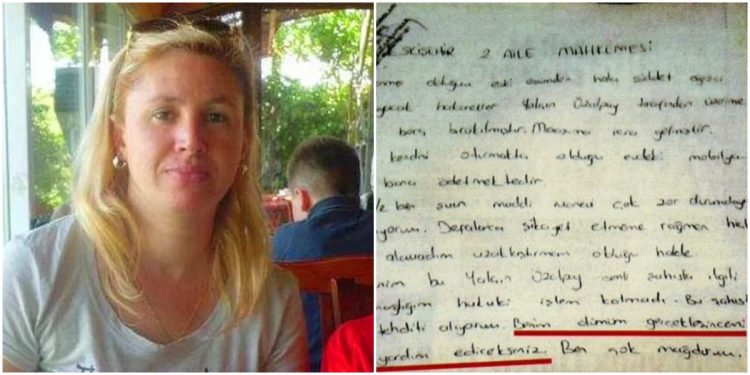 ESKİŞEHİR 2 AİLE MAHKEMESİ
olduğum eski eşimden hala şiddet
hakaretler Yalçın Özalpay tarafından üzerime
borç bıraktılmıştır. Maaşıma icra gelmiştir.
kendisi oturmakta olduğu evdeki mobilya
bana ödetmektedir
ben şuan maddi manevi çok zor durumday
Defalarca şikayet etmeme rağmen hiç
alamadım uzaklaştırmam olduğu halde
bu Yalçın Özalpay isimli şahısla ilgili
hukuki işlem kalmadı. Bu şahıs
tehditi alıyorum. Benim ölümüm gerçekleşincemi
yardım ediceksiniz. Ben çok mağdurum.